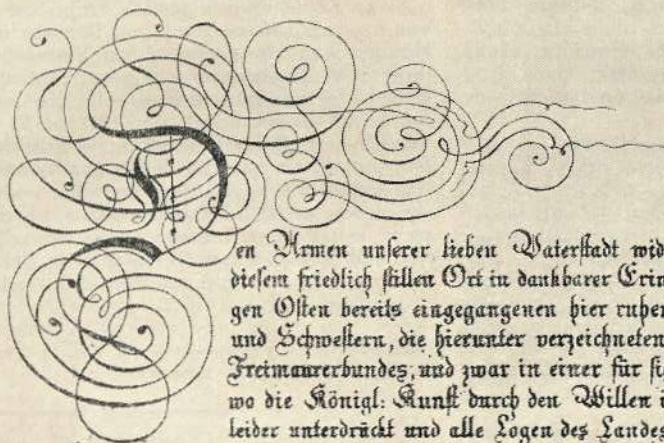 Den Armen unserer lieben Vaterstadt wid
diesem friedlich stillen Ort in dankbarer Erin
gen Osten bereits eingegangenen hier ruhen
und Schwestern, die hierunter verzeichneten
Freimaurerbundes, und zwar in einer für si
wo die Königl: Kunst durch den Willen
leider unterdrückt und alle Logen des Landes